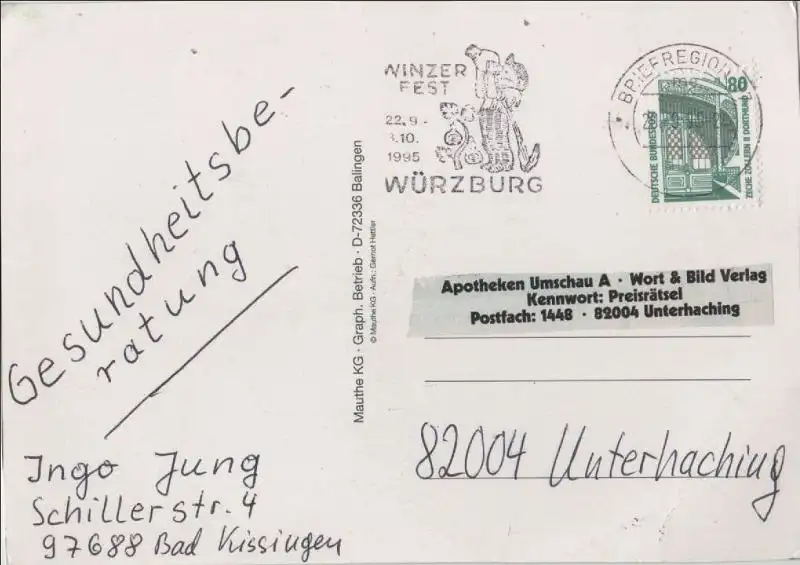 Gesundheitsbe-
ratung
Ingo Jung
Schillerstr. 4
97688 Bad Kissingen
Mauthe KG · Graph. Betrieb · D-72336 Balingen
© Mauthe KG · Aufn.: Gernot Hettler
WINZER
FEST
22.9.-
3.10.
1995
WÜRZBURG
BRIEFREGION
80
DEUTSCHE BUNDESPOST
ZECHE ZOLLERN II DORTMUND
Apotheken Umschau A · Wort & Bild Verlag
Kennwort: Preisrätsel
Postfach: 1448 · 82004 Unterhaching
82004 Unterhaching